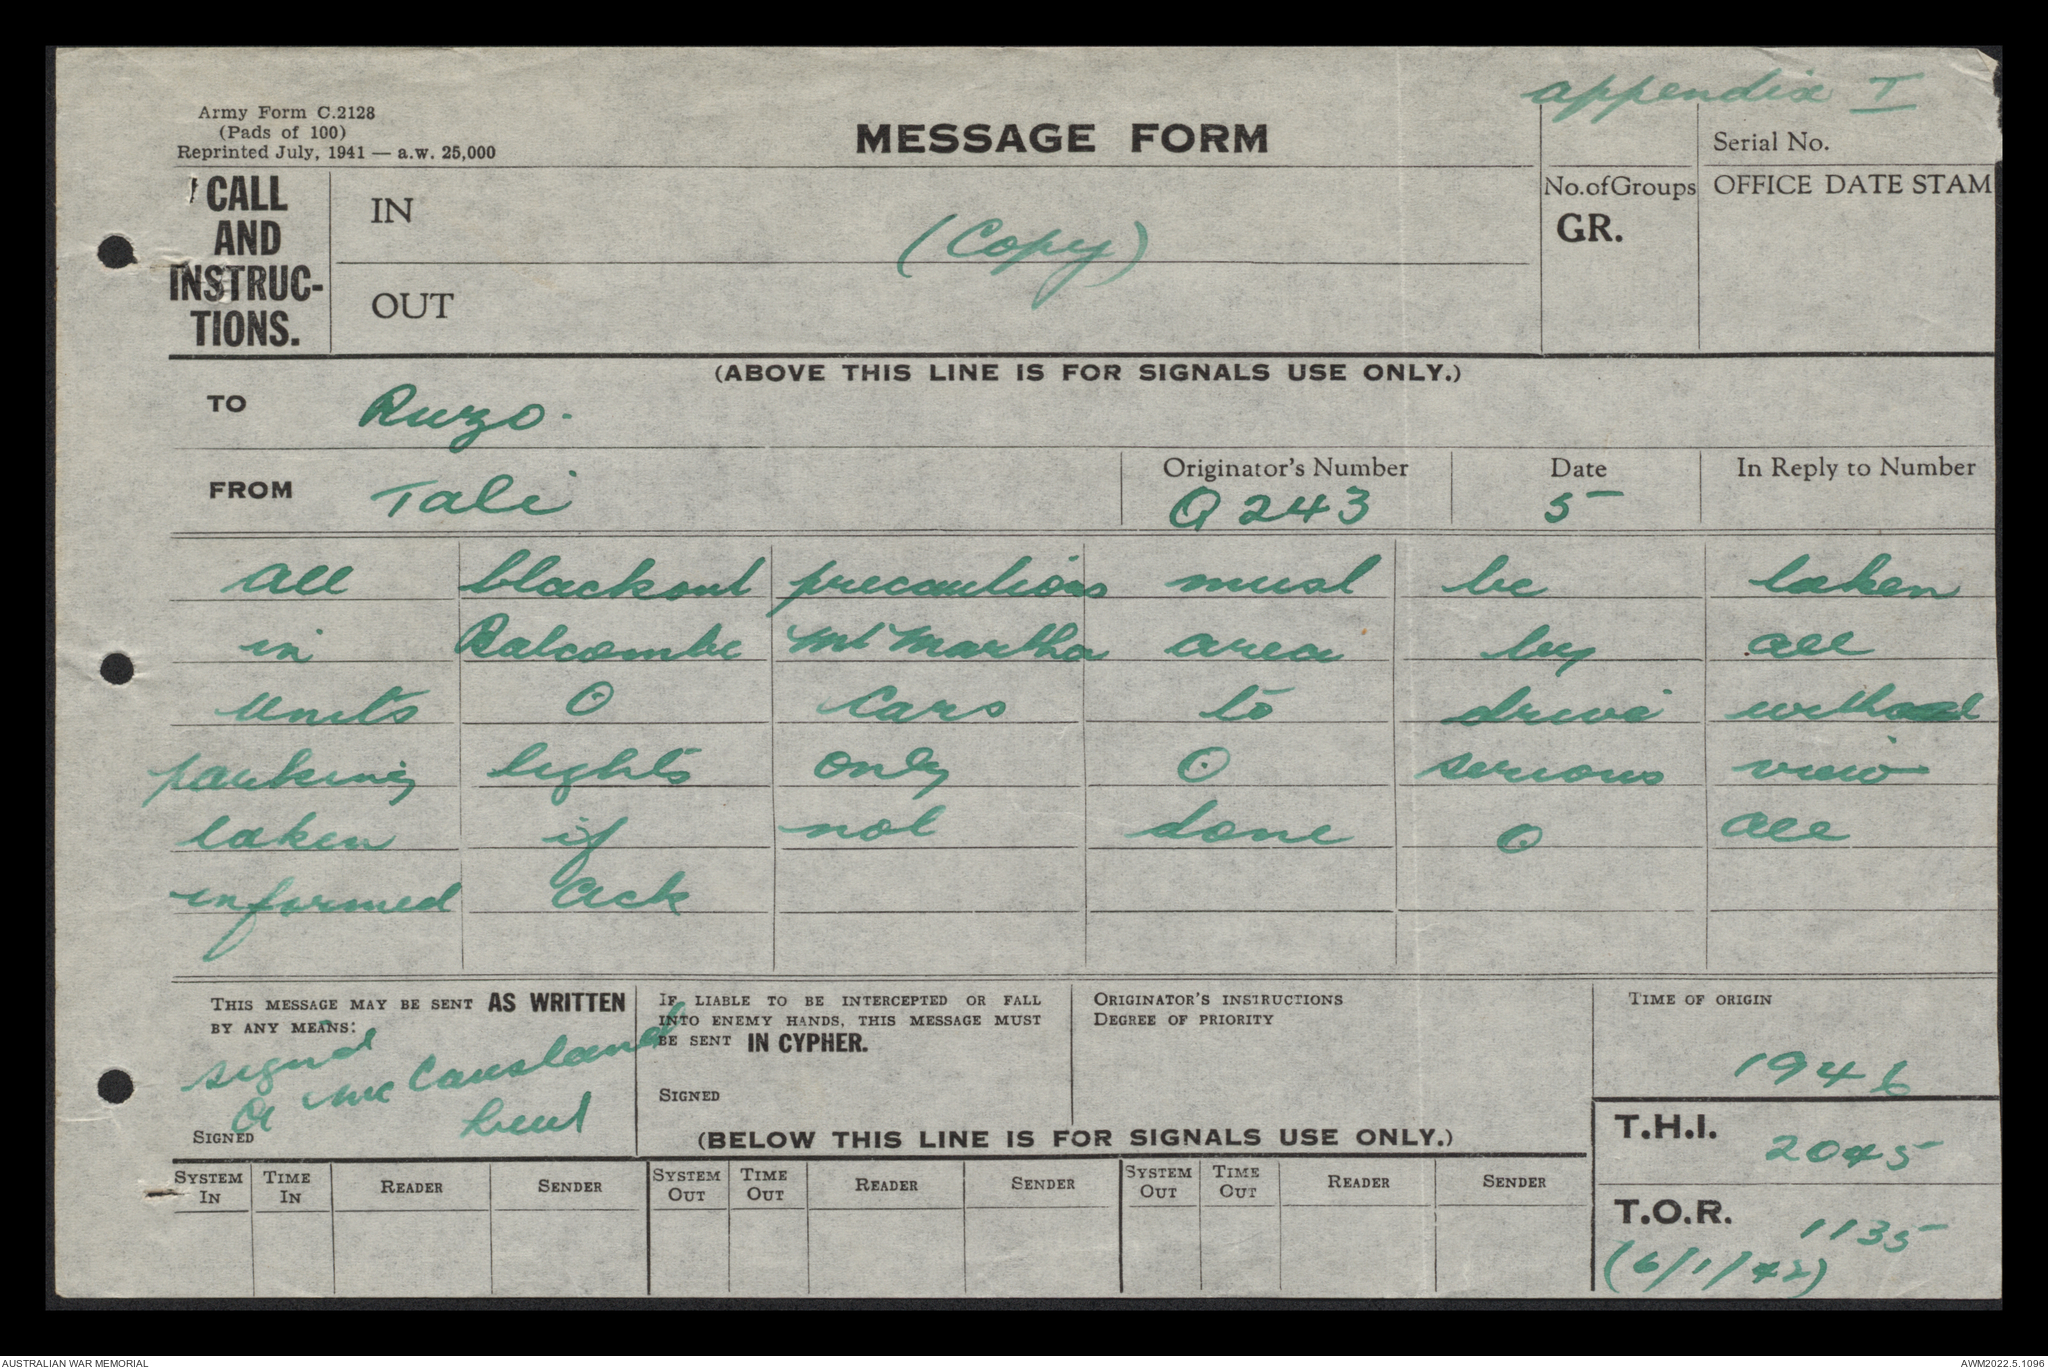 appendix I
Army Form C.2128
(Pads of 100)
Reprinted July, 1941 — a.w. 25,000
MESSAGE FORM
Serial No.
CALL AND INSTRUC-TIONS.
IN
(Copy)
OUT
No. of Groups
GR.
OFFICE DATE STAM
(ABOVE THIS LINE IS FOR SIGNALS USE ONLY.)
TO Ruzo.
FROM Tali
Originator's Number Q 243
Date 5
In Reply to Number
all blackout precautions must be taken
in Balcombe Mt Martha area by all
units O Cars to drive with
parking lights only O serious view
taken if not done O all
informed ack
THIS MESSAGE MAY BE SENT AS WRITTEN
BY ANY MEANS:
signed
A McCausland
Lieut
SIGNED
IF LIABLE TO BE INTERCEPTED OR FALL
INTO ENEMY HANDS, THIS MESSAGE MUST
BE SENT IN CYPHER.
SIGNED
ORIGINATOR'S INSTRUCTIONS
DEGREE OF PRIORITY
TIME OF ORIGIN
1946
(BELOW THIS LINE IS FOR SIGNALS USE ONLY.)
T.H.I. 2045
T.O.R. 1135
(6/1/42)
SYSTEM IN TIME IN READER SENDER SYSTEM OUT TIME OUT READER SENDER SYSTEM OUT TIME OUT READER SENDER
AUSTRALIAN WAR MEMORIAL
AWM2022.5.1096